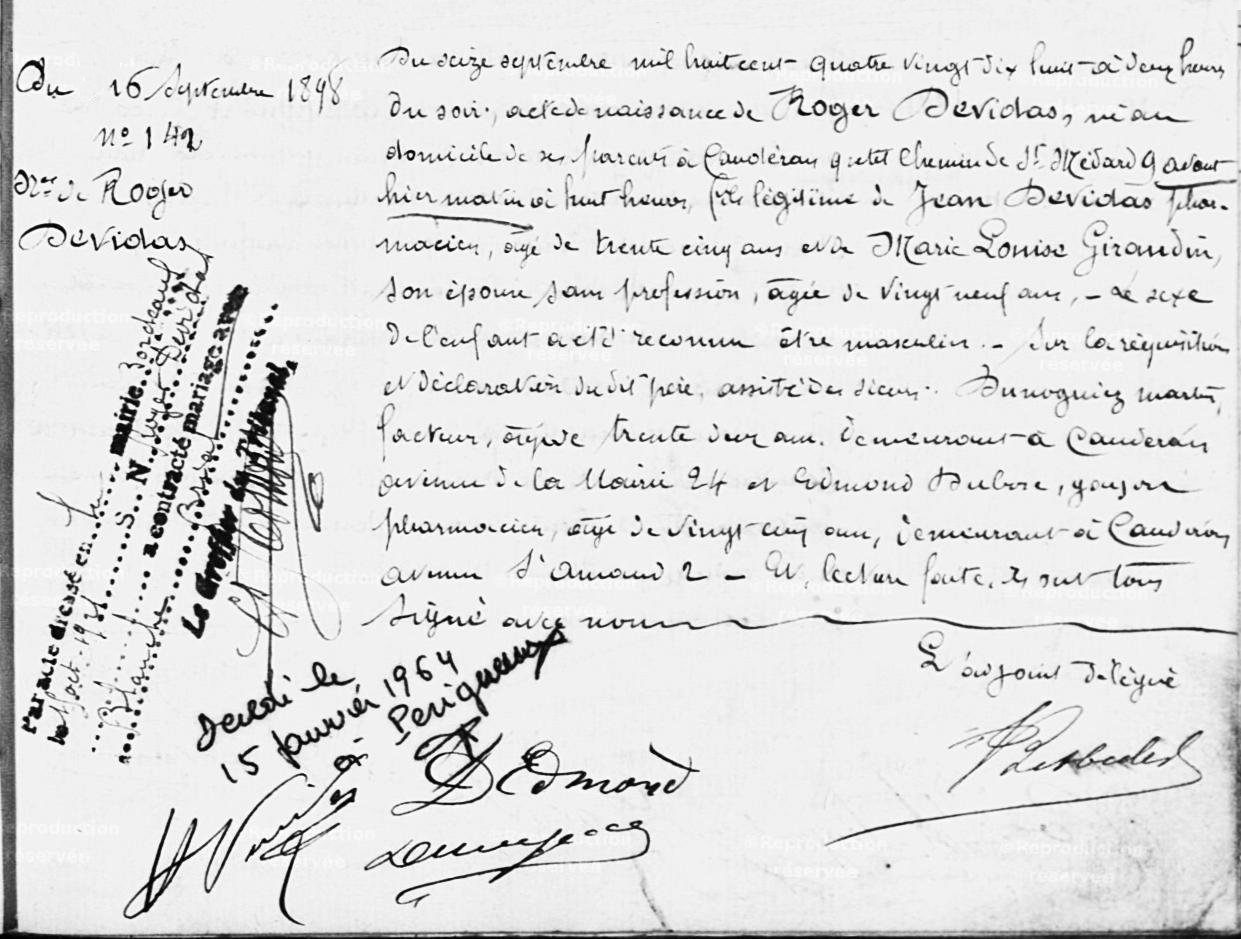 Du 16 Septembre 1898
n° 142
Nce de Roger
Devidas
Du seize septembre mil huit cent quatre vingt dix huit à deux heures
du soir, acte de naissance de Roger Devidas, né au
domicile de ses parents à Caudéran petit Chemin de St Médard 9 avant
hier matin à huit heures, fils légitime de Jean Devidas phar-
macien, âgé de trente cinq ans et de Marie Louise Giraudin,
son épouse sans profession, âgée de vingt neuf ans, - Le sexe
de l'enfant a été reconnu être masculin. - Sur la réquisition
et déclaration du dit père, assité des sieurs Martin,
facteur, âgé de trente deux ans, demeurant à Caudéran
avenue de la Mairie 24 et Edmond Dubosc, garçon
pharmacien, âgé de vingt cinq ans, demeurant à Caudéran
avenue St Amand 2 - Et, lecture faite, ils ont tous
signé avec nous
L'adjoint délégué
Par acte dressé en la mairie Bordeaux
le 1931 S. N. Roger Devidas
a contracté mariage avec
Blanche
Le Greffier du Tribunal,
Décédé le
15 Janvier 1964
à Périgueux
Edmond
Reproduction
réservée